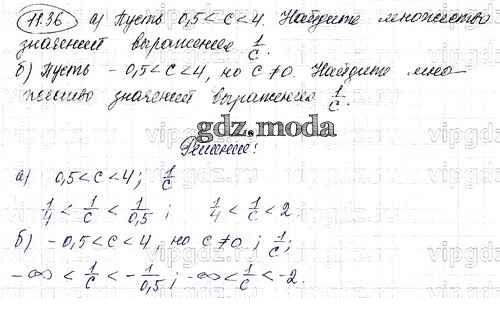 11.36 а) Пусть 0,5 < c < 4. Найдите множество
значений выражения 1/c.
б) Пусть -0,5 < c < 4, но c ≠ 0. Найдите мно-
жество значений выражения 1/c.
gdz.moda
Решение:
а) 0,5 < c < 4; 1/c
1/4 < 1/c < 1/0,5; 1/4 < 1/c < 2
б) -0,5 < c < 4, но c ≠ 0; 1/c;
-∞ < 1/c < -1/0,5; -∞ < 1/c < -2.